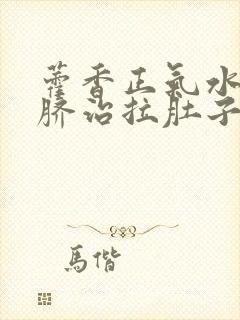 藿香正氣水
脐治拉肚子
馬偕